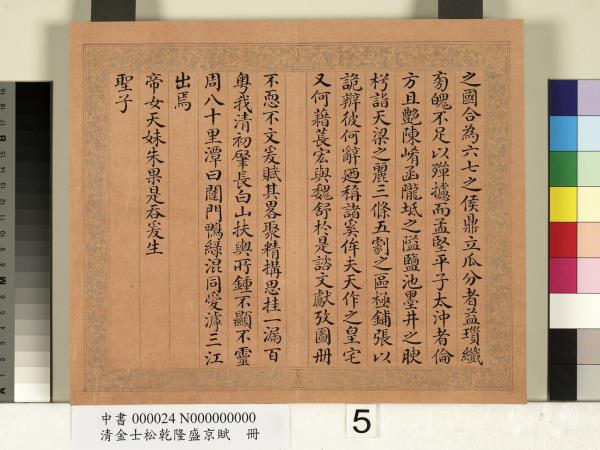 之國合為六七之侯鼎立瓜分者益瑣纖
匋醜不足以殫攄而孟堅平子太沖者倫
方且艷陳崤函隴坻之隘鹽池墨井之腴
枍詣天梁之麗三條五劇之區極鋪張以
詭辯彼何辭迺稱諸奚侔夫天作之皇宅
又何藉萇宏與魏舒於是諮文獻攷圖冊
不恧不文爰賦其畧聚精構思挂一漏百
粵我清初肇長白山扶輿所鍾不顯不靈
周八十里潭曰闥門鴨綠混同愛滹三江
出焉
帝女天妹朱果是吞爰生
聖子
中書 000024 N000000000
清金士松乾隆盛京賦 冊
5